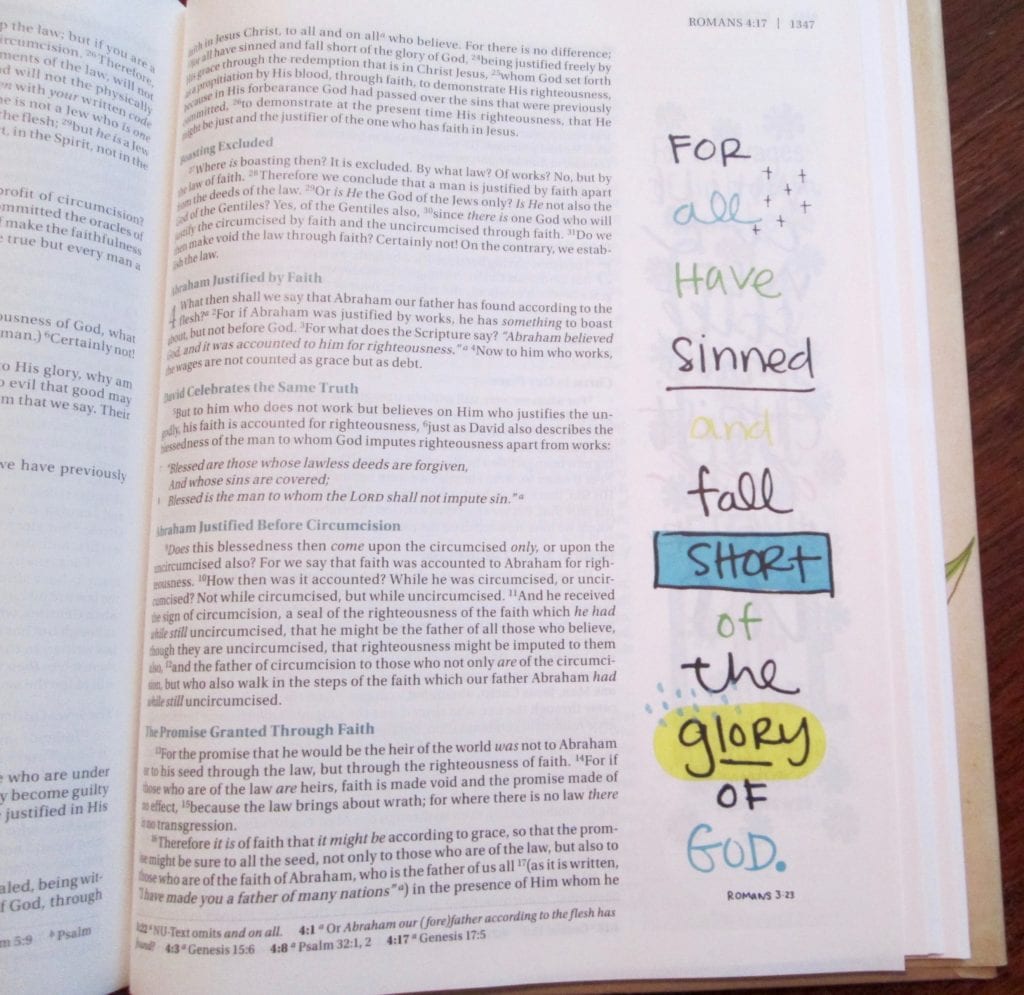 p the law; but if you are a
ircumcision. 26Therefore,
ments of the law, will not
d will not the physically
en with your written code
he is not a Jew who is one
the flesh; 29but he is a Jew
rt, in the Spirit, not in the
profit of circumcision?
ommitted the oracles of
f make the faithfulness
e true but every man a
ousness of God, what
man.) 6Certainly not!
o His glory, why am
o evil that good may
m that we say. Their
we have previously
e who are under
y become guilty
e justified in His
aled, being wit-
f God, through
m 5:9 b Psalm
ROMANS 4:17 | 1347
faith in Jesus Christ, to all and on alla who believe. For there is no difference;
for all have sinned and fall short of the glory of God, 24being justified freely by
His grace through the redemption that is in Christ Jesus, 25whom God set forth
as a propitiation by His blood, through faith, to demonstrate His righteousness,
because in His forbearance God had passed over the sins that were previously
committed, 26to demonstrate at the present time His righteousness, that He
might be just and the justifier of the one who has faith in Jesus.
Boasting Excluded
27Where is boasting then? It is excluded. By what law? Of works? No, but by
the law of faith. 28Therefore we conclude that a man is justified by faith apart
from the deeds of the law. 29Or is He the God of the Jews only? Is He not also the
God of the Gentiles? Yes, of the Gentiles also, 30since there is one God who will
justify the circumcised by faith and the uncircumcised through faith. 31Do we
then make void the law through faith? Certainly not! On the contrary, we estab-
lish the law.
Abraham Justified by Faith
4 What then shall we say that Abraham our father has found according to the
flesh?a 2For if Abraham was justified by works, he has something to boast
about, but not before God. 3For what does the Scripture say? "Abraham believed
God, and it was accounted to him for righteousness."a 4Now to him who works,
the wages are not counted as grace but as debt.
David Celebrates the Same Truth
5But to him who does not work but believes on Him who justifies the un-
godly, his faith is accounted for righteousness, 6just as David also describes the
blessedness of the man to whom God imputes righteousness apart from works:
7 "Blessed are those whose lawless deeds are forgiven,
And whose sins are covered;
8 Blessed is the man to whom the LORD shall not impute sin."a
Abraham Justified Before Circumcision
9Does this blessedness then come upon the circumcised only, or upon the
uncircumcised also? For we say that faith was accounted to Abraham for righ-
teousness. 10How then was it accounted? While he was circumcised, or uncir-
cumcised? Not while circumcised, but while uncircumcised. 11And he received
the sign of circumcision, a seal of the righteousness of the faith which he had
while still uncircumcised, that he might be the father of all those who believe,
though they are uncircumcised, that righteousness might be imputed to them
also, 12and the father of circumcision to those who not only are of the circumci-
sion, but who also walk in the steps of the faith which our father Abraham had
while still uncircumcised.
The Promise Granted Through Faith
13For the promise that he would be the heir of the world was not to Abraham
or to his seed through the law, but through the righteousness of faith. 14For if
those who are of the law are heirs, faith is made void and the promise made of
no effect, 15because the law brings about wrath; for where there is no law there
is no transgression.
16Therefore it is of faith that it might be according to grace, so that the prom-
ise might be sure to all the seed, not only to those who are of the law, but also to
those who are of the faith of Abraham, who is the father of us all 17(as it is written,
"I have made you a father of many nations"a) in the presence of Him whom he
3:22 a NU-Text omits and on all. 4:1 a Or Abraham our (fore)father according to the flesh has
found? 4:3 a Genesis 15:6 4:8 a Psalm 32:1, 2 4:17 a Genesis 17:5
FOR
all
Have
sinned
and
fall
SHORT
of
the
glORy
OF
GOD.
ROMANS 3:23